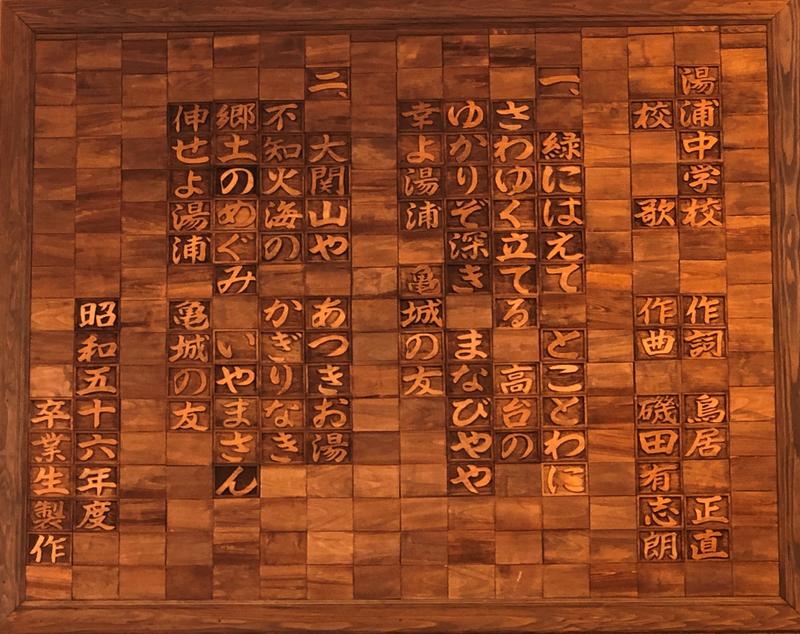 湯浦中学校 作詞 鳥居 正直
校 歌 作曲 磯田有志朗
一、緑にはえて とことわに
さわゆく立てる 高台の
ゆかりぞ深き まなびやや
幸よ湯浦 亀城の友
二、大関山や あつきお湯
不知火海の かぎりなき
郷土のめぐみ いやまさん
伸せよ湯浦 亀城の友
昭和五十六年度
卒業生製作